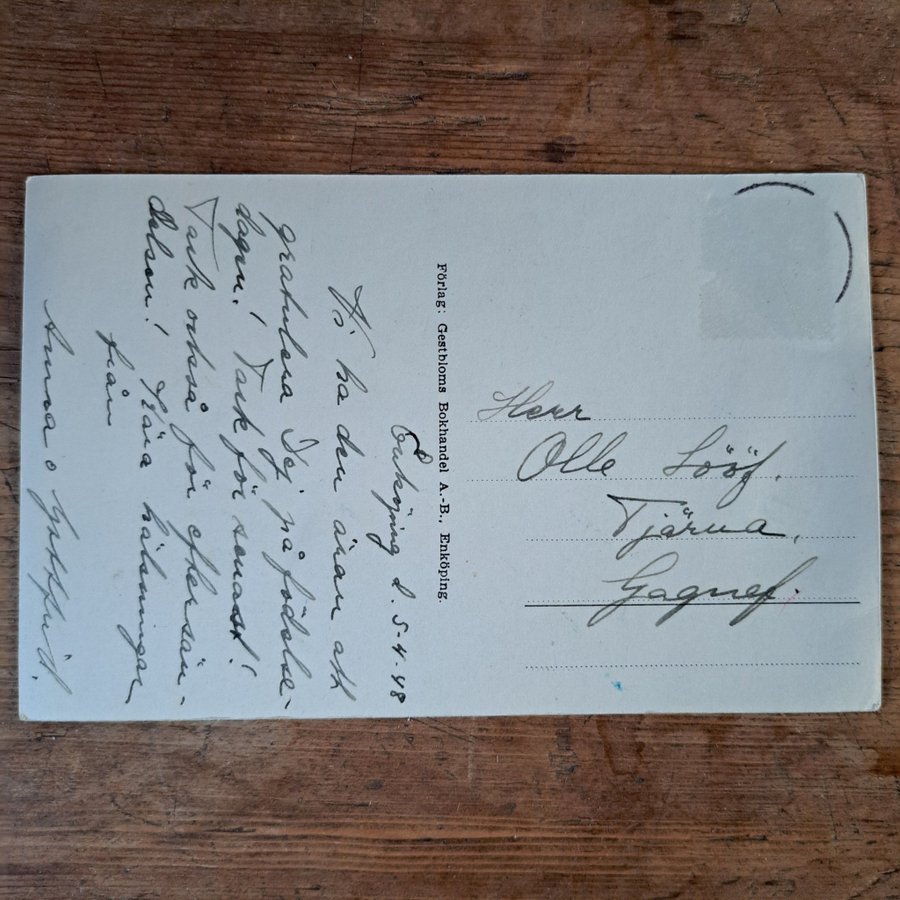 Enköping d. 5-4-48
Vi ha den äran att
gratulera Dej på födelse-
dagen! Tack för senast!
Tack också för eftersän-
delsen! Kära hälsningar
från
Anna o
Förlag: Gestbloms Bokhandel A.-B., Enköping.
Herr
Olle Lööf.
Tjärna.
Gagnef.